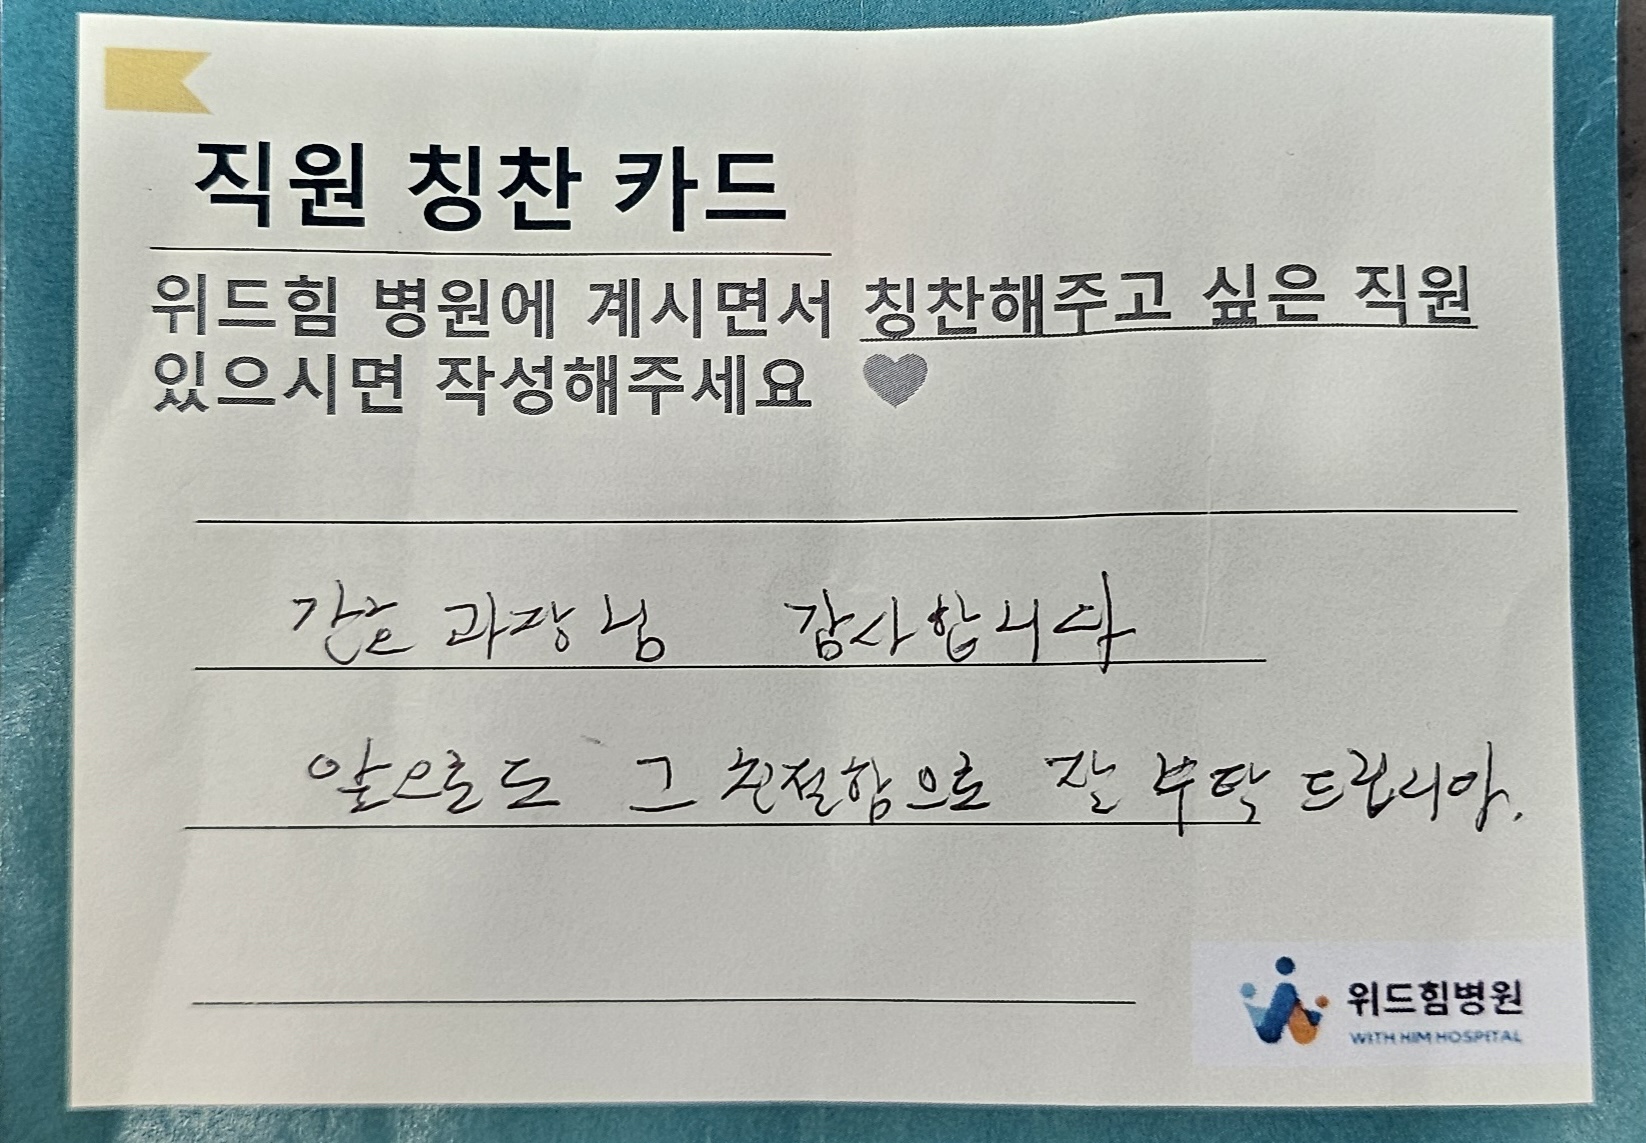 직원 칭찬 카드
위드힘 병원에 계시면서 칭찬해주고 싶은 직원
있으시면 작성해주세요
간호 과장님 감사합니다
앞으로도 그 친절함으로 잘 부탁 드립니다.
위드힘병원
WITH HIM HOSPITAL